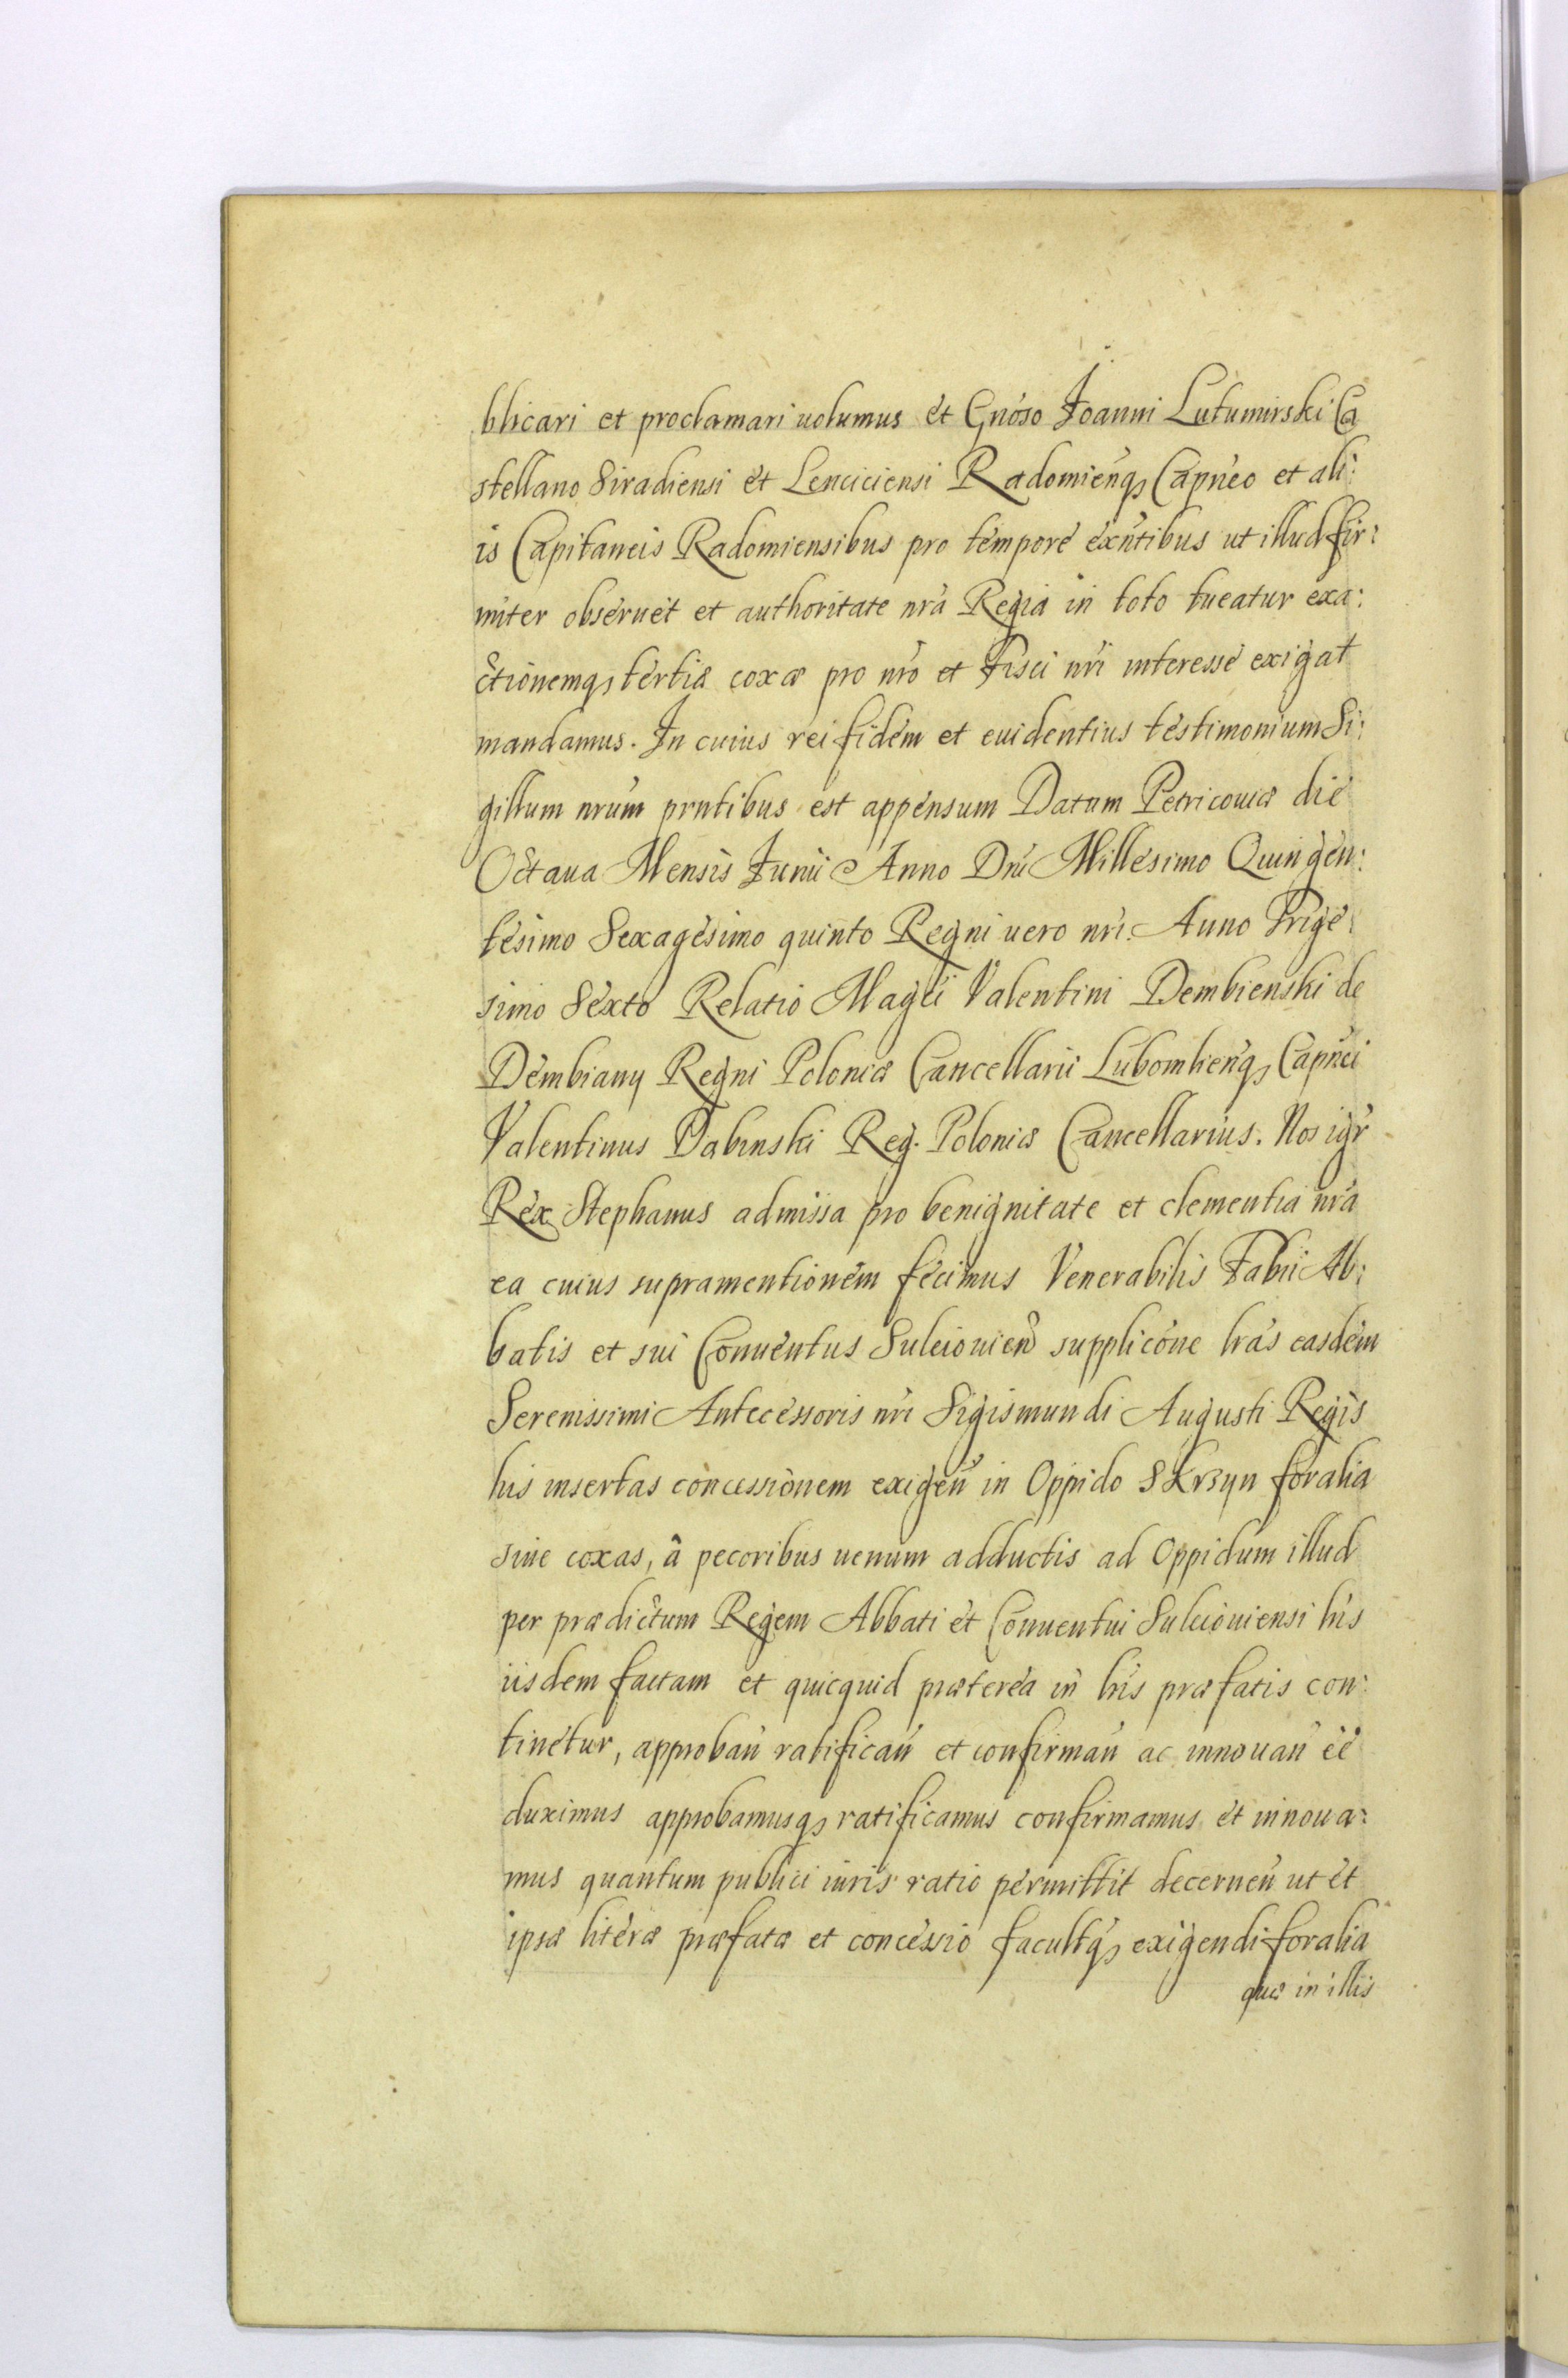 blicari et proclamari uolumus et Gnoso Joanni Lutumirski Ca
stellano Siradiensi et Lenciciensi Radomienq₃ Capneo et ali:
is Capitaneis Radomiensibus pro tempore exntibus ut illud fir:
miter obseruet et authoritate nra Regia in toto tueatur exa:
ctionemq₃ tertiæ coxæ pro nro et Fisci nri interesse exigat
mandamus. In cuius rei fidem et euidentius testimonium Si:
gillum nrum prntibus est appensum Datum Petricouiæ die
Octaua Mensis Junii Anno Dni Millesimo Quingen:
tesimo Sexagesimo quinto Regni uero nri. Anno Trige:
simo Sexto Relatio Magci Valentini Dembienski de
Dembiany Regni Poloniæ Cancellarii Lubomlienq₃ Capnei
Valentinus Dabinski Reg. Poloniæ Cancellarius. Nos igr
Rex Stephanus admissa pro benignitate et clementia nra
ea cuius supramentionem fecimus Venerabilis Fabii Ab:
batis et sui Conuentus Suleiouien supplicone lras easdem
Serenissimi Antecessoris nri Sigismundi Augusti Regis
his insertas concessionem exigen in Oppido Skrzyn foralia
siue coxas, â pecoribus uenum adductis ad Oppidum illud
per prædictum Regem Abbati et Conuentui Suleiouiensi lris
iisdem factam et quicquid præterea in lris præfatis con:
tinetur, approban ratifican et confirman ac innouan ee
duximus approbamusq₃ ratificamus confirmamus et innoua:
mus quantum publici iuris ratio permittit decernen ut et
ipsæ literæ præfatæ et concessio facultq₃ exigendi foralia
quæ in illis